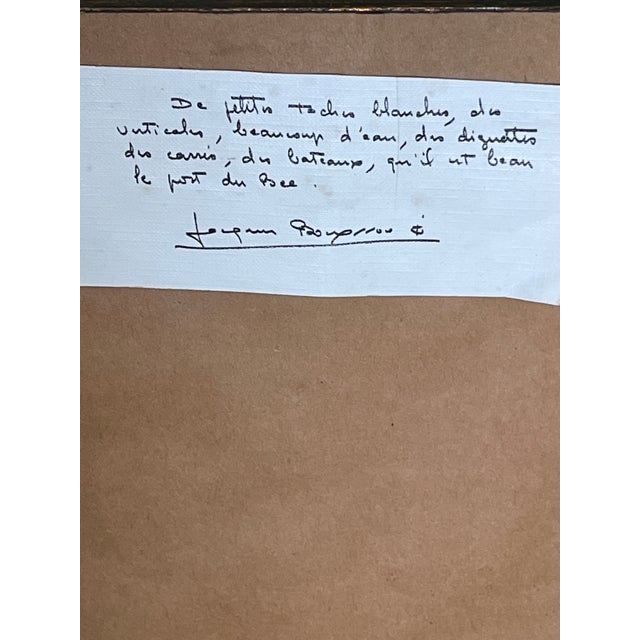 De petites taches blanches, des
verticales, beaucoup d'eau, des diguettes
des carrés, des bateaux, qu'il est beau
le port du Bec.
Jacques